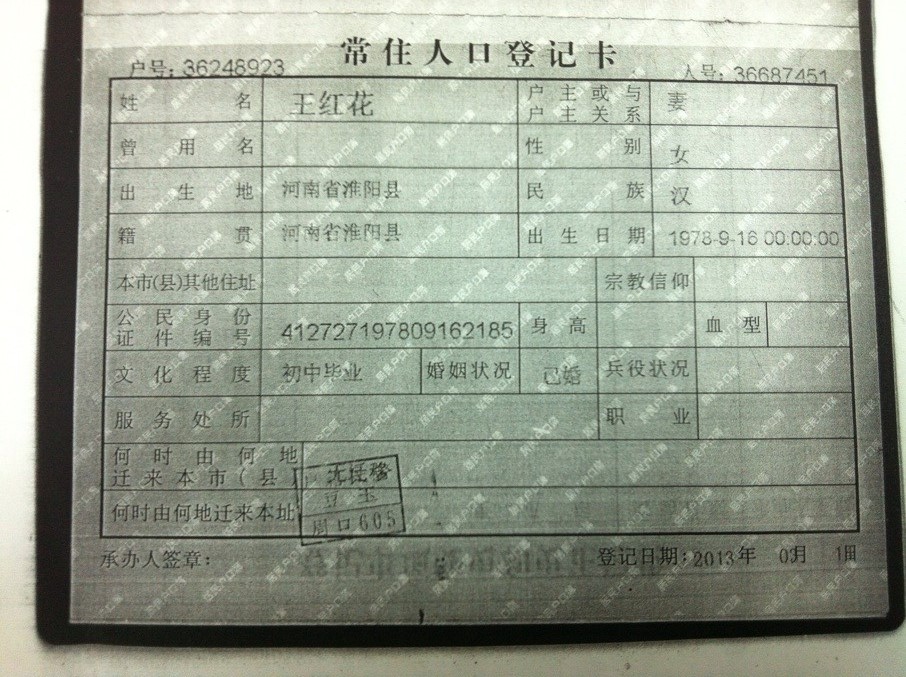 常住人口登记卡
户号：36248923 人号：36687451
姓名 王红花 户主或与户主关系 妻
曾用名 性别 女
出生地 河南省淮阳县 民族 汉
籍贯 河南省淮阳县 出生日期 1978-9-16 00:00:00
本市(县)其他住址 宗教信仰
公民身份证件编号 412727197809162185 身高 血型
文化程度 初中毕业 婚姻状况 已婚 兵役状况
服务处所 职业
何时由何地迁来本市(县)
何时由何地迁来本址
周口605
承办人签章： 登记日期：2013年 03月 1日